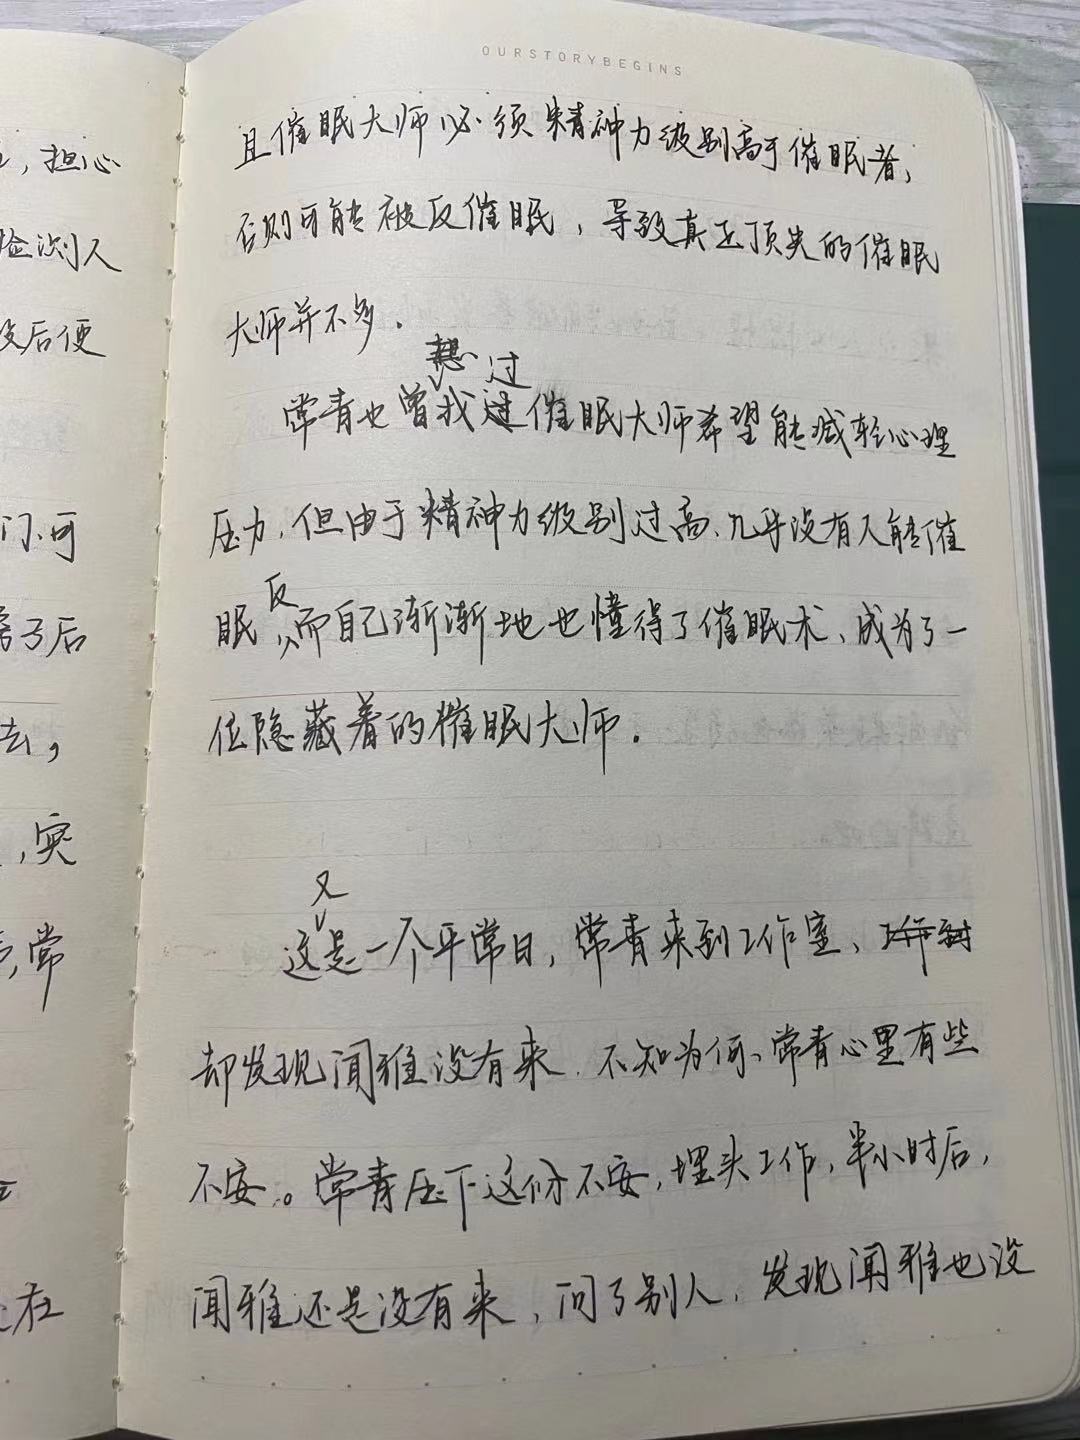 ，担心
验测人
没后便
门.可
房子后
去，
，实
常
在
OURSTORYBEGINS
且催眠大师必须精神力级别高于催眠者，
否则可能被反催眠，导致真正顶尖的催眠
大师并不多.
想过
常青也曾找过催眠大师希望能减轻心理
压力，但由于精神力级别过高、几乎没有人能催
反
眠，而自己渐渐地也懂得了催眠术、成为了一
位隐藏着的催眠大师.
又
这是一个平常日，常青来到工作室、工作到
却发现闻雅没有来.不知为何、常青心里有些
不安.。常青压下这份不安，埋头工作，半小时后，
闻雅还是没有来，问了别人，发现闻雅也没